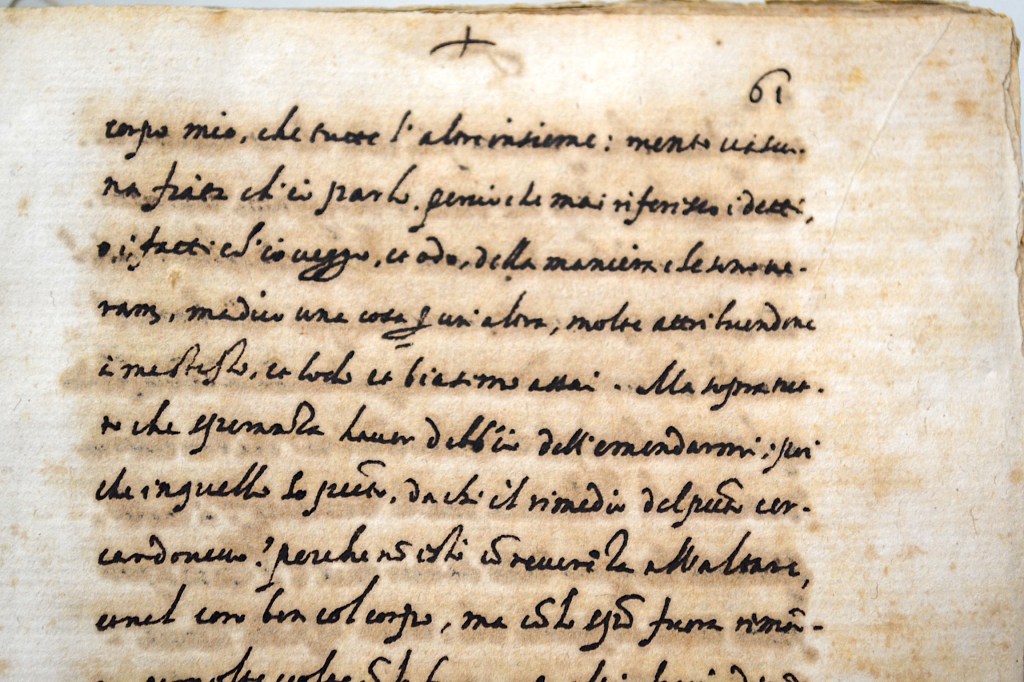 61
corpo mio, che tutte l'altre insieme: mento ciascu-
na fiata ch'io parlo. perciò che mai riferisco i detti,
o, i fatti ch'io veggo, et odo, della maniera che sono ve-
ma dico una cosa per un'altra, molte attribuendone
a me stesso, et lodo et biasimo assai. Ma sopra tut-
to che speranza haver debb'io dell'emendarmi; poi
che in quello ho pecto, da chi il rimedio del pecto cer-
cando ? perche nõ istò cõ reverẽza all'altare,
et nel coro ben col corpo, ma cõ lo spo fuora rimõ-